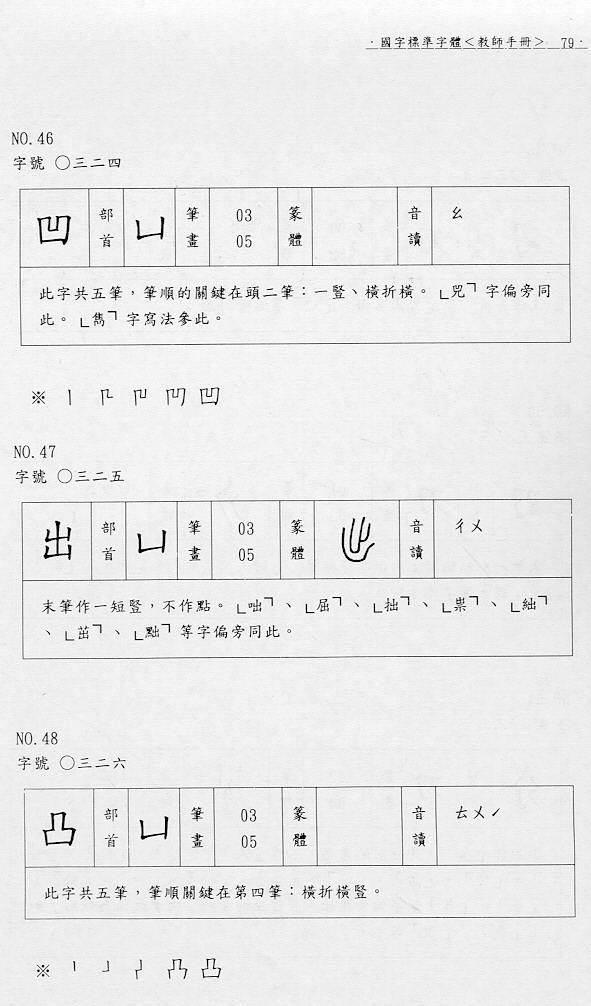 ·國字標準字體<教師手冊> 79·
NO.46
字號 ○三二四
凹 部首 凵 筆畫 03 05 篆體 音讀 ㄠ
此字共五筆,筆順的關鍵在頭二筆:一豎、橫折橫。「兕」字偏旁同
此。「雋」字寫法參此。
※
NO.47
字號 ○三二五
出 部首 凵 筆畫 03 05 篆體 音讀 ㄔㄨ
末筆作一短豎,不作點。「咄」、「屈」、「拙」、「祟」、「絀」
、「茁」、「黜」等字偏旁同此。
NO.48
字號 ○三二六
凸 部首 凵 筆畫 03 05 篆體 音讀 ㄊㄨˊ
此字共五筆,筆順關鍵在第四筆:橫折橫豎。
※